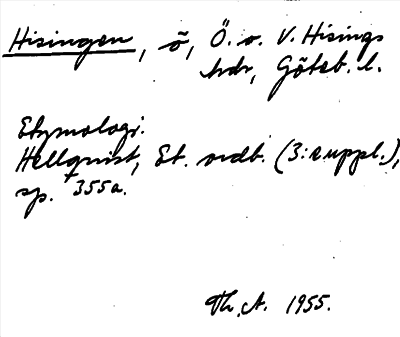 Hisingen, ö, Ö. o. V. Hisings
hdr, Göteb. l.
Etymologi.
Hellquist, Et. ordb. (3:e uppl.),
sp. 355a.
Th. A. 1955.